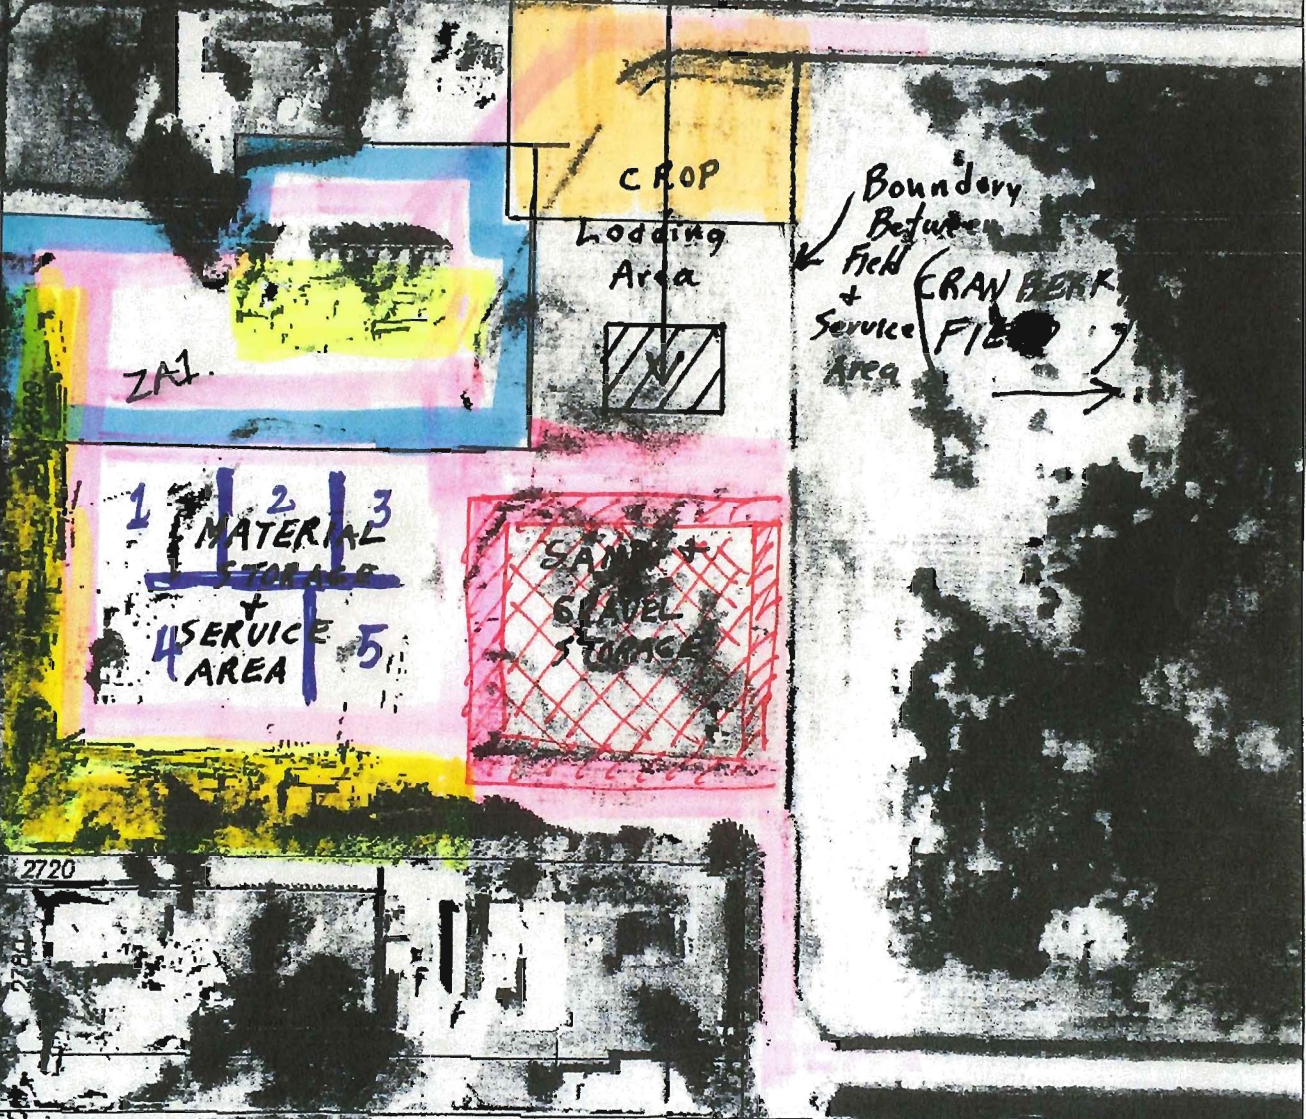 CROP
Loading
Area
Boundery
Between
Field
+
Service
Area
CRANBERRY
FIELD
ZA1.
1 2 3
MATERIAL
STORAGE
+
SERVICE
AREA
4 5
SAND +
GRAVEL
STORAGE
2720